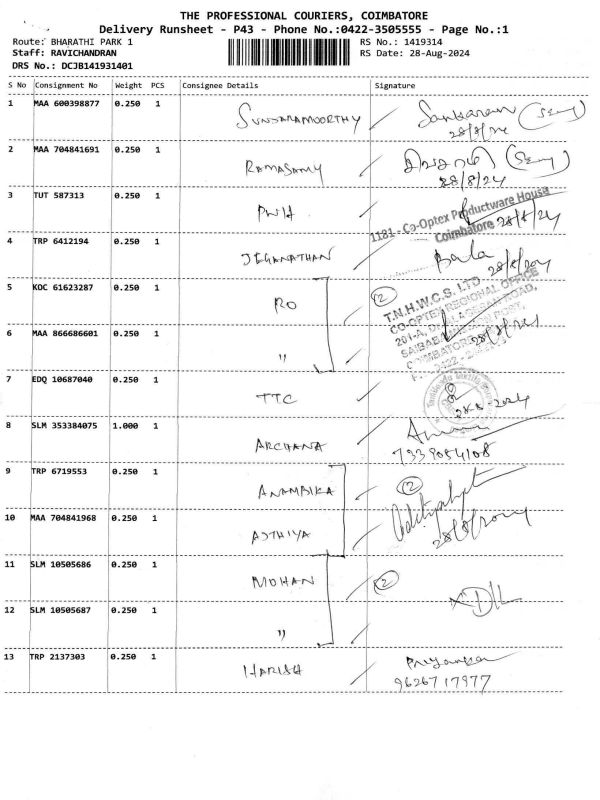 THE PROFESSIONAL COURIERS, COIMBATORE
Delivery Runsheet - P43 - Phone No.:0422-3505555 - Page No.:1
Route: BHARATHI PARK 1
RS No.: 1419314
Staff: RAVICHANDRAN
RS Date: 28-Aug-2024
DRS No.: DCJB141931401
S No Consignment No Weight PCS Consignee Details Signature
1 MAA 600398877 0.250 1 SUNDARAMOORTHY Sankaran
28/8/24
2 MAA 704841691 0.250 1 RAMASAMY
28/8/24
3 TUT 587313 0.250 1 PWH 28/8/24
1181 - Co-Optex Productware House
Coimbatore
4 TRP 6412194 0.250 1 JEGANATHAN Bala
28/8/2024
5 KOC 61623287 0.250 1 RO 2
T.N.H.W.C.S. LTD
CO-OPTEX REGIONAL OFFICE
6 MAA 866686601 0.250 1 " 28/8/24
7 EDQ 10687040 0.250 1 TTC
28-8-2024
8 SLM 353384075 1.000 1 ARCHANA
7339054108
9 TRP 6719553 0.250 1 ANAMBIKA 2
10 MAA 704841968 0.250 1 ADTHIYA
28/8/2024
11 SLM 10505686 0.250 1 MOHAN 2
12 SLM 10505687 0.250 1 "
13 TRP 2137303 0.250 1 HARISH Priyanka
9626717977